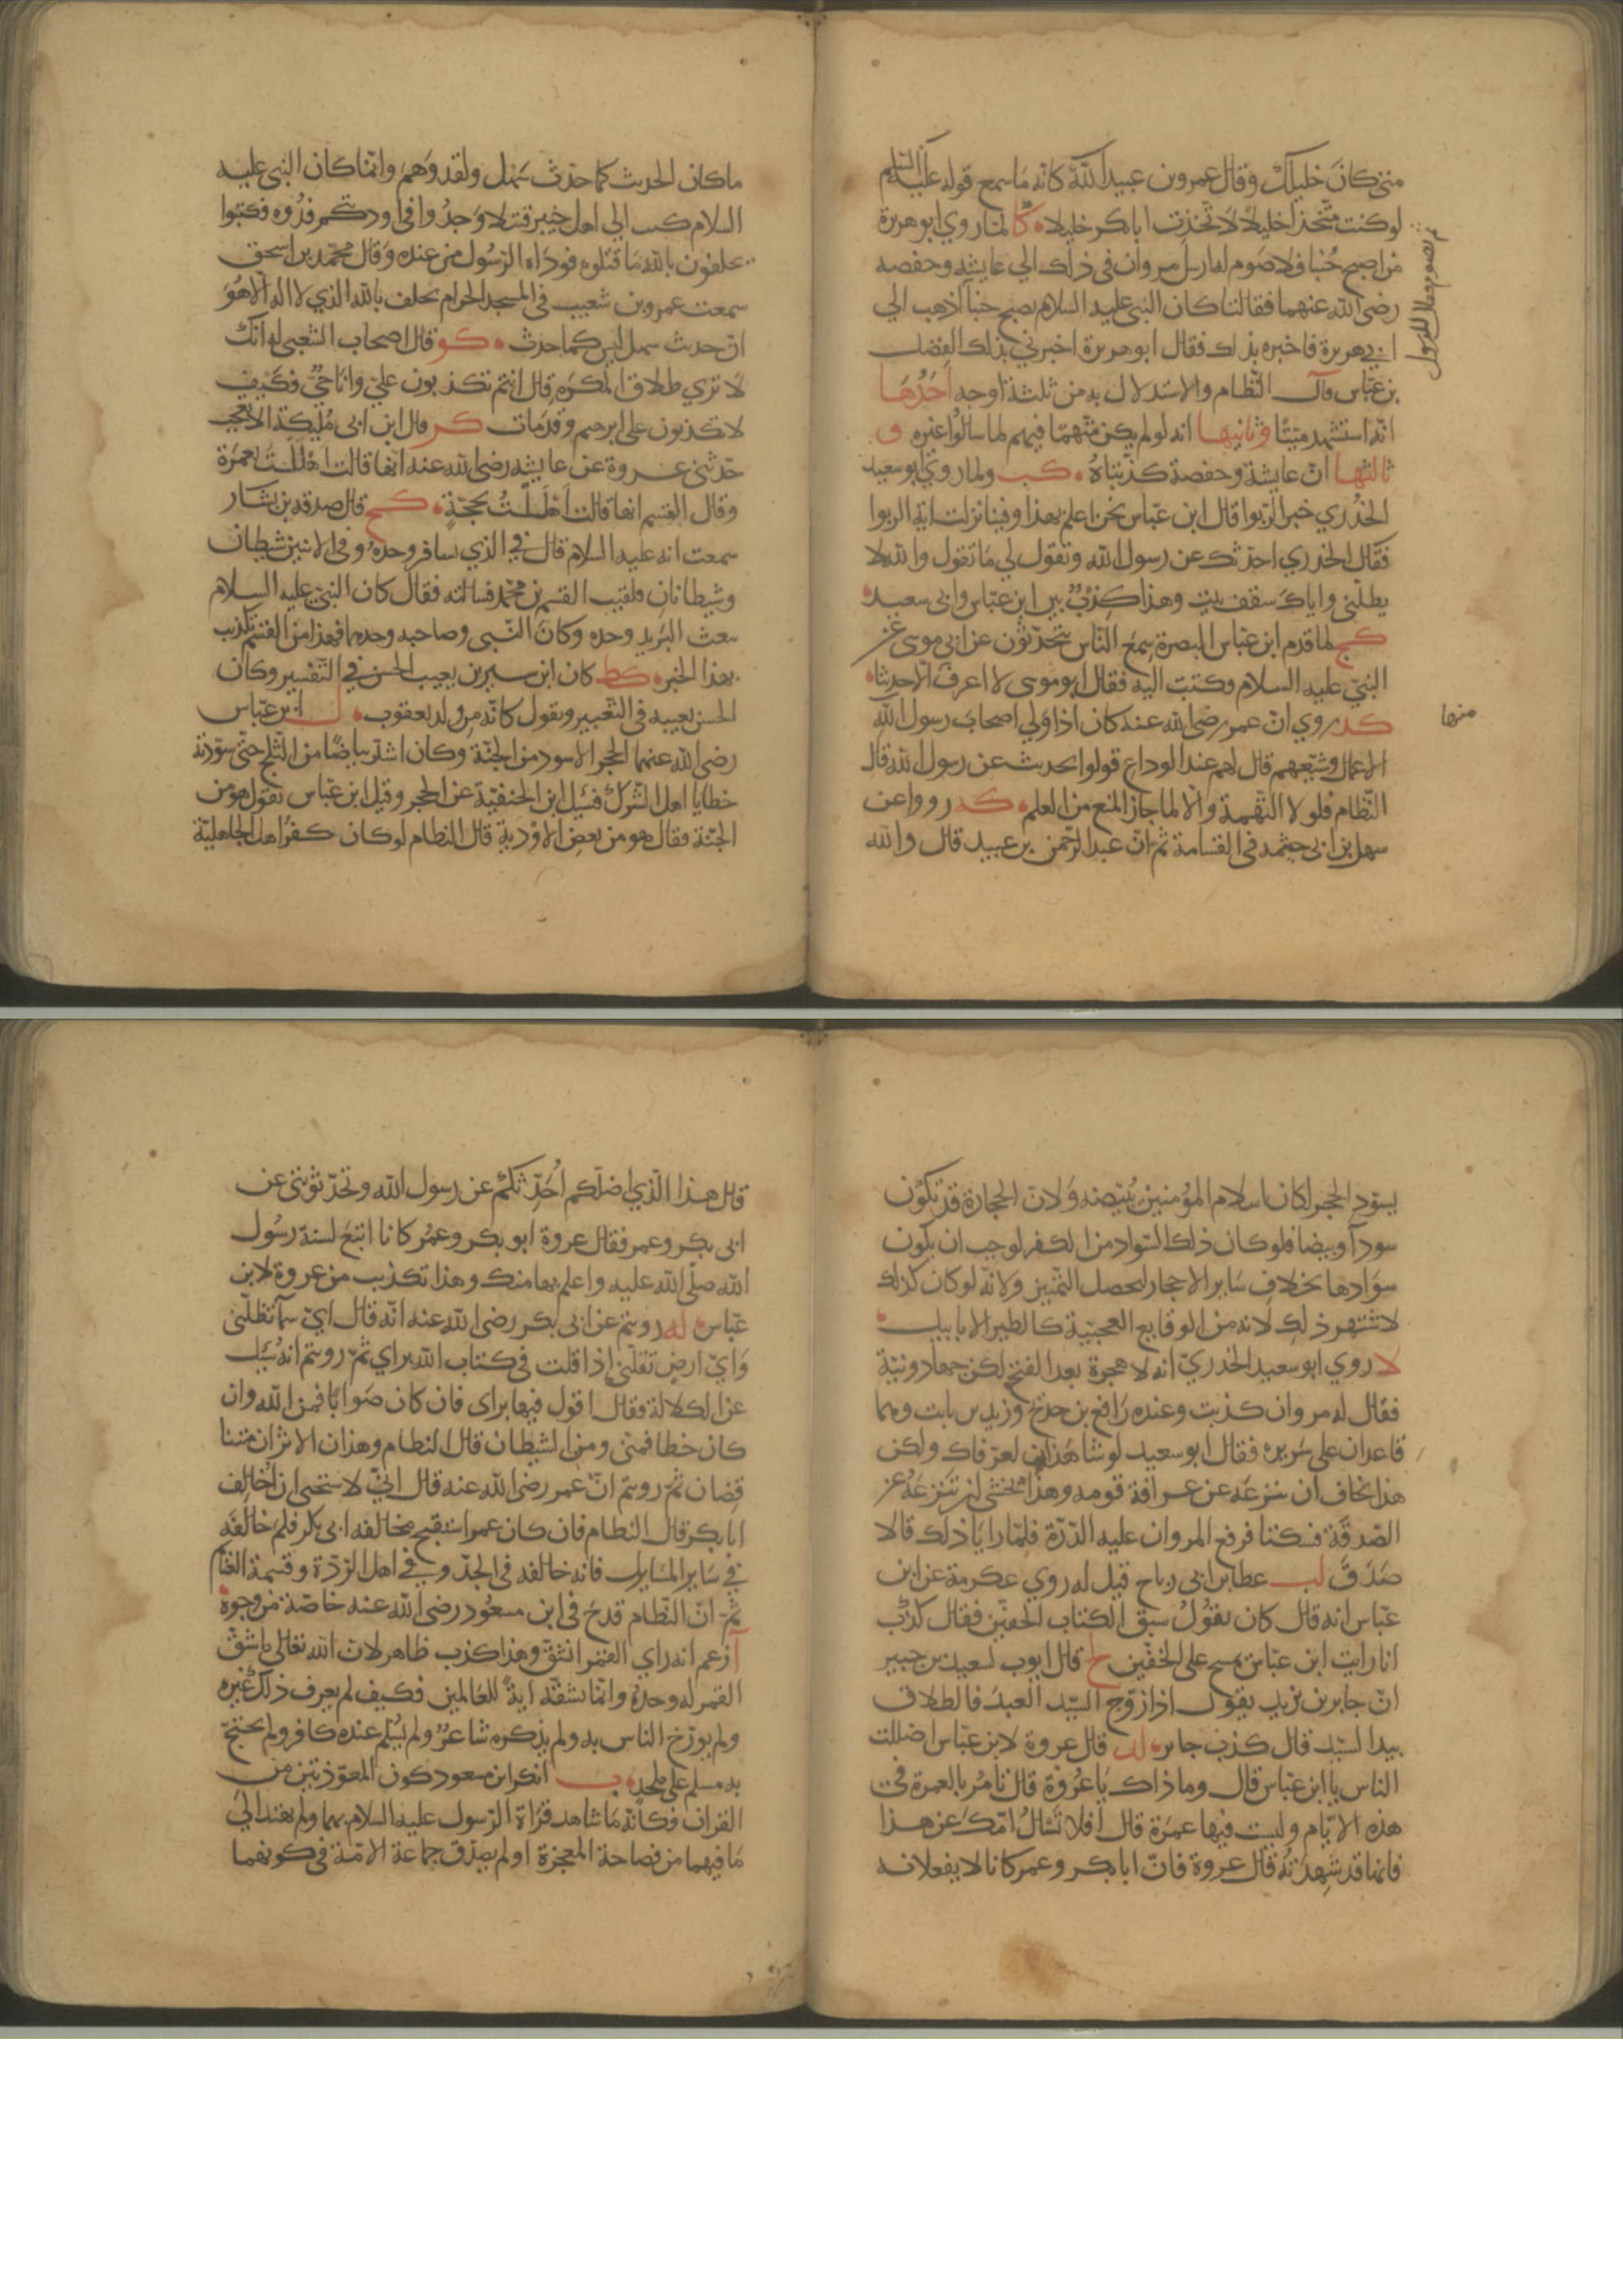 متى كان خليلك وقال عمرو بن عبيد الله كانه ما سمع قوله عليه السلم
لو كنت متخذا خليلا لاتخذت ابا بكر خليلا كا لما روي ابو هريرة
من اصبح جنبا فلا صوم له ارسل مروان في ذلك الي عايشة وحفصة
رضي الله عنهما فقالتا كان النبي عليه السلام يصبح جنبا اذهب الي
ثم يصوم فقالا للرسول
ابي هريرة فاخبره بذلك فقال ابو هريرة اخبرني بذلك الفضل
بن عباس قال النظام والاستدلال به من ثلثة اوجه احدها
انه استشهد ميتا وثانيها انه لو لم يكن متهما فيهم لما سالوا غيره و
ثالثها ان عايشة وحفصة كذبتاه كب ولما روي ابو سعيد
الخدري خبر الربوا قال ابن عباس نحن اعلم بهذا وفينا نزلت اية الربوا
فقال الخدري احدثك عن رسول الله وتقول لي ما تقول والله لا
يظلني واياك سقف بيت وهذا كذب بين ابن عباس وابي سعيد
كج لما قدم ابن عباس البصرة سمع الناس يتحدثون عن ابي موسى عن
النبي عليه السلام وكتب اليه فقال ابو موسى لا اعرف الا حديثا
منها
كد روي ان عمر رضي الله عنه كان اذا ولي اصحاب رسول الله
الاعمال وشيعهم قال لهم عند الوداع قولوا بحديث عن رسول الله قال
النظام فلولا التهمة والا لما جاز المنع من العلم كه رووا عن
سهل بن ابي حيثمة في القسامة ثم ان عبد الرحمن بن عبيد قال والله
ما كان الحديث كما حدث سهل ولقد وهم وانما كان النبي عليه
السلام كتب الي اهل خيبر قتيلا وجدوا في اودتكم فدوه فكتبوا
يحلفون بالله ما قتلوه فوداه الرسول من عنده وقال محمد بن اسحق
سمعت عمرو بن شعيب في المسجد الحرام يحلف بالله الذي لا اله الا هو
ان حديث سهل ليس كما حدث كو قال اصحاب الشعبي له انك
لا تري طلاق المكره قال انتم تكذبون علي وانا حي فكيف
لا تكذبون على ابرهيم وقد مات كز قال ابن ابي مليكة الا تعجب
حدثني عروة عن عايشة رضي الله عنه انها قالت اهللت بعمرة
وقال القسم انها قالت اهللت بحجة كح قال صدقة بن يشار
سمعت انه عليه السلام قال في الذي سافر وحده وفي الاثنين شيطان
وشيطانان فلقيت القسم بن محمد فسالته فقال كان النبي عليه السلام
يبعث البريد وحده وكان النبي وصاحبه وحدهما فهذا من القسم تكذيب
بهذا الخبر كط كان ابن سيرين يعيب الحسن في التفسير وكان
الحسن يعيبه في التعبير ويقول كانه من ولد يعقوب ل ابن عباس
رضي الله عنهما الحجر الاسود من الجنة وكان اشد بياضا من الثلج حتى سودته
خطايا اهل الشرك فسئل ابن الحنفية عن الحجر وقيل ابن عباس يقول هو من
الجنة فقال هو من بعض الاودية قال النظام لو كان كفر اهل الجاهلية
يسود الحجر لكان اسلام المؤمنين يبيضه ولان الحجارة قد تكون
سودا وبيضا فلو كان ذلك السواد من الكفر لوجب ان يكون
سوادها بخلاف ساير الاحجار ليحصل التمييز ولانه لو كان كذلك
لاشتهر ذلك لانه من الوقايع العجيبة كالطير الابابيل
لا روي ابو سعيد الخدري انه لا هجرة بعد الفتح لكن جهاد ونية
فقال له مروان كذبت وعنده رافع بن خديج وزيد بن ثابت وهما
قاعدان على سريره فقال ابو سعيد لو شا هذان لعرفاك ولكن
هذا يخاف ان ينزعه عن عرافة قومه وهذا يخشى ان تنزعه عن
الصدقة فسكتا فرفع المروان عليه الدرة فلما رايا ذلك قالا
صدق لب عطا بن ابي رباح قيل له روي عكرمة عن ابن
عباس انه قال كان يقول سبق الكتاب الخفين فقال كذب
انا رايت ابن عباس يمسح على الخفين لج قال ايوب لسعيد بن جبير
ان جابر بن يزيد يقول اذا زوج السيد العبد فالطلاق
بيد السيد قال كذب جابر لد قال عروة لابن عباس اضللت
الناس يا ابن عباس قال وما ذاك يا عروة قال تامر بالعمرة في
هذه الايام وليست فيها عمرة قال افلا تسال امك عن هذا
فانها قد شهدته قال عروة فان ابا بكر وعمر كانا لا يفعلانه
قال هذا الذي اضلكم احدثكم عن رسول الله وتحدثونني عن
ابي بكر وعمر فقال عروة ابو بكر وعمر كانا اتبع لسنة رسول
الله صلى الله عليه واعلم بها منك وهذا تكذيب من عروة لابن
عباس له رويتم عن ابي بكر رضي الله عنه انه قال اي سما تظلني
واي ارض تقلني اذا قلت في كتاب الله براي ثم رويتم انه سئل
عن الكلالة فقال اقول فيها براي فان كان صوابا فمن الله وان
كان خطا فمني ومن الشيطان قال النظام وهذان الاثران متنا
قضان ثم رويتم ان عمر رضي الله عنه قال اني لاستحيي ان اخالف
ابا بكر قال النظام فان كان عمر استقبح مخالفة ابي بكر فلم خالفه
في ساير المسايل فانه خالفه في الجد وفي اهل الردة وقسمة الغنايم
ثم ان النظام قدح في ابن مسعود رضي الله عنه خاصة من وجوه
آ زعم انه راي القمر انشق وهذا كذب ظاهر لان الله تعالى ما شق
القمر له وحده وانما يشقه اية للعالمين فكيف لم يعرف ذلك غيره
ولم يورخ الناس به ولم يذكره شاعر ولم يسلم عنده كافر ولم يحتج
به مسلم على ملحد ب انكر ابن مسعود كون المعوذتين من
القران فكانه ما شاهد قراة الرسول عليه السلام بهما ولم يهتد الي
ما فيهما من فصاحة المعجزة او لم يصدق جماعة الامة في كونهما